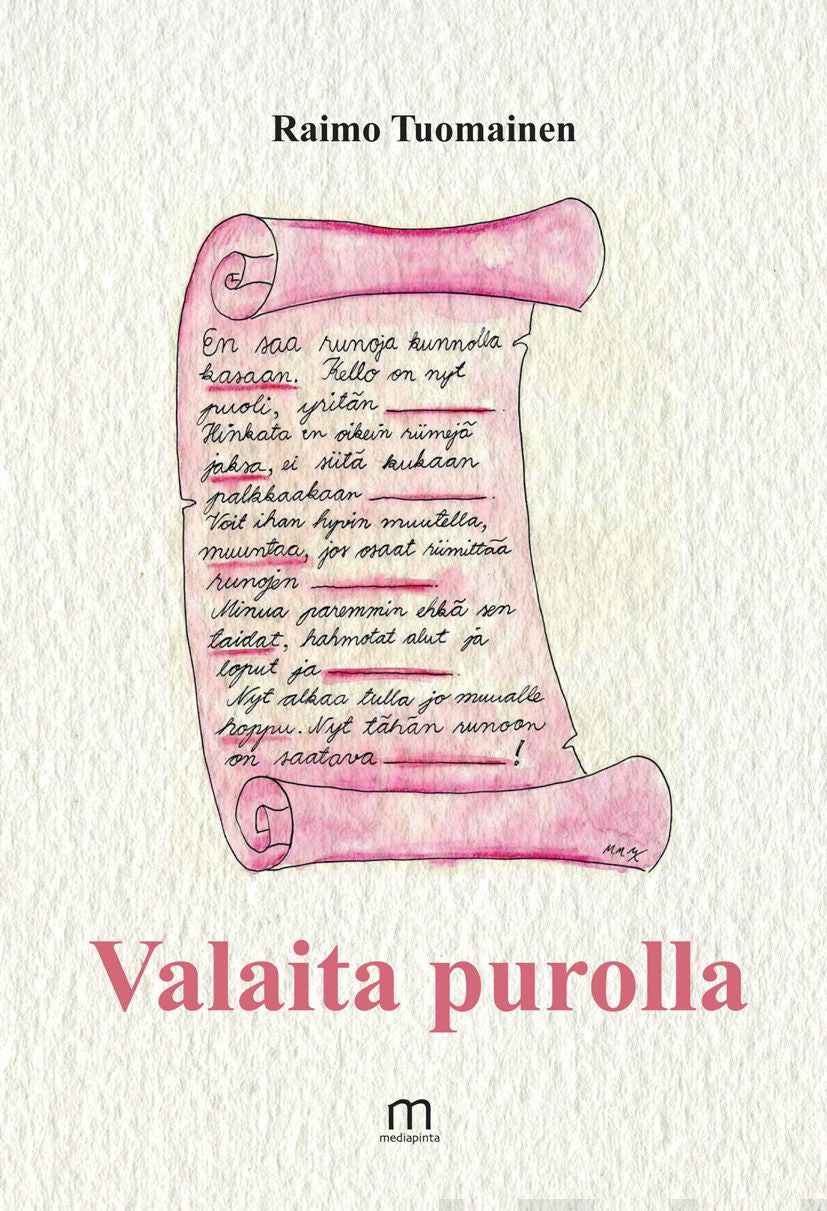 Raimo Tuomainen
En saa runoja kunnolla
kasaan. Kello on nyt
puoli, yritän ________.
Hinkata en oikein riimejä
jaksa, ei siitä kukaan
palkkaakaan ________.
Voit ihan hyvin muutella,
muuntaa, jos osaat riimittää
runojen ________.
Minua paremmin ehkä sen
taidat, hahmotat alut ja
loput ja ________.
Nyt alkaa tulla jo muualle
hoppu. Nyt tähän runoon
on saatava ________!
Valaita purolla
m
mediapinta